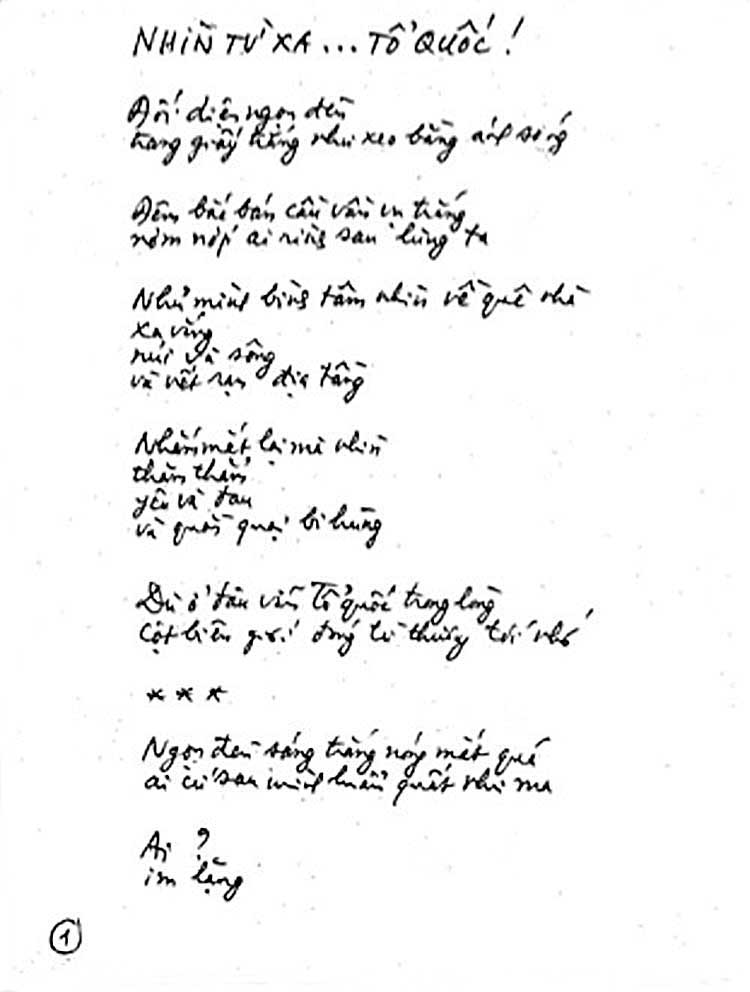 NHÌN TỪ XA ... TỔ QUỐC !
Đối diện ngọn đèn
trang giấy trắng như xeo bằng ánh sáng
Đêm bắc bán cầu vần vụ trắng
nơm nớp ai rình sau lưng ta
Nhủ mình bình tâm nhìn về quê nhà
xa vắng
núi và sông
và vết rạn địa tầng
Nhắm mắt lại mà nhìn
thăm thẳm
yêu và đau
và quằn quại bi hùng
Dù ở đâu vẫn Tổ quốc trong lòng
Cột biên giới đóng từ thương tới nhớ
* * *
Ngọn đèn sáng trắng nóng mắt quá
ai cứ sau mình lẩn quất như ma
Ai ?
im lặng
1